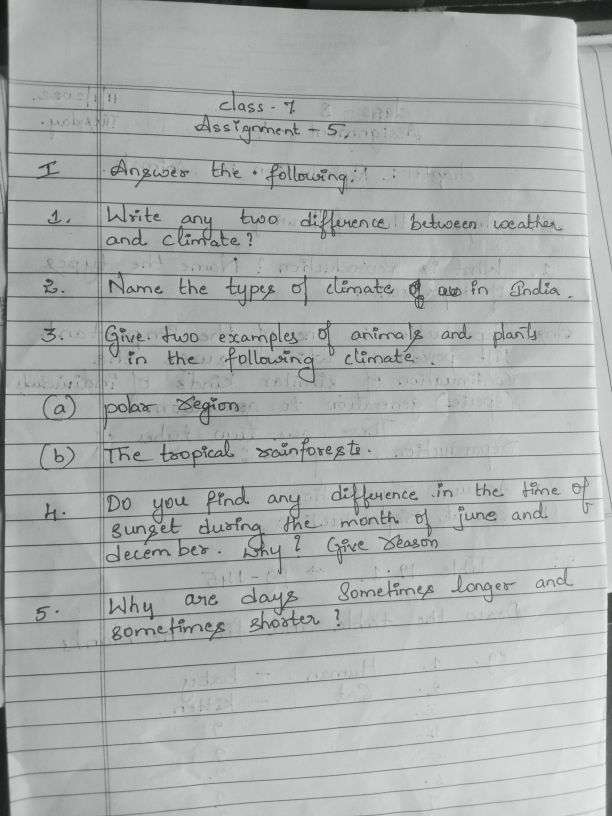 class - 7
Assignment - 5.
I Answer the following:
1. Write any two difference between weather
and climate?
2. Name the types of climate in India.
3. Give two examples of animals and plants
in the following climate.
(a) polar region
(b) The tropical rainforests.
4. Do you find any difference in the time of
sunset during the month of june and
december. Why? Give reason
5. Why are days sometimes longer and
sometimes shorter?